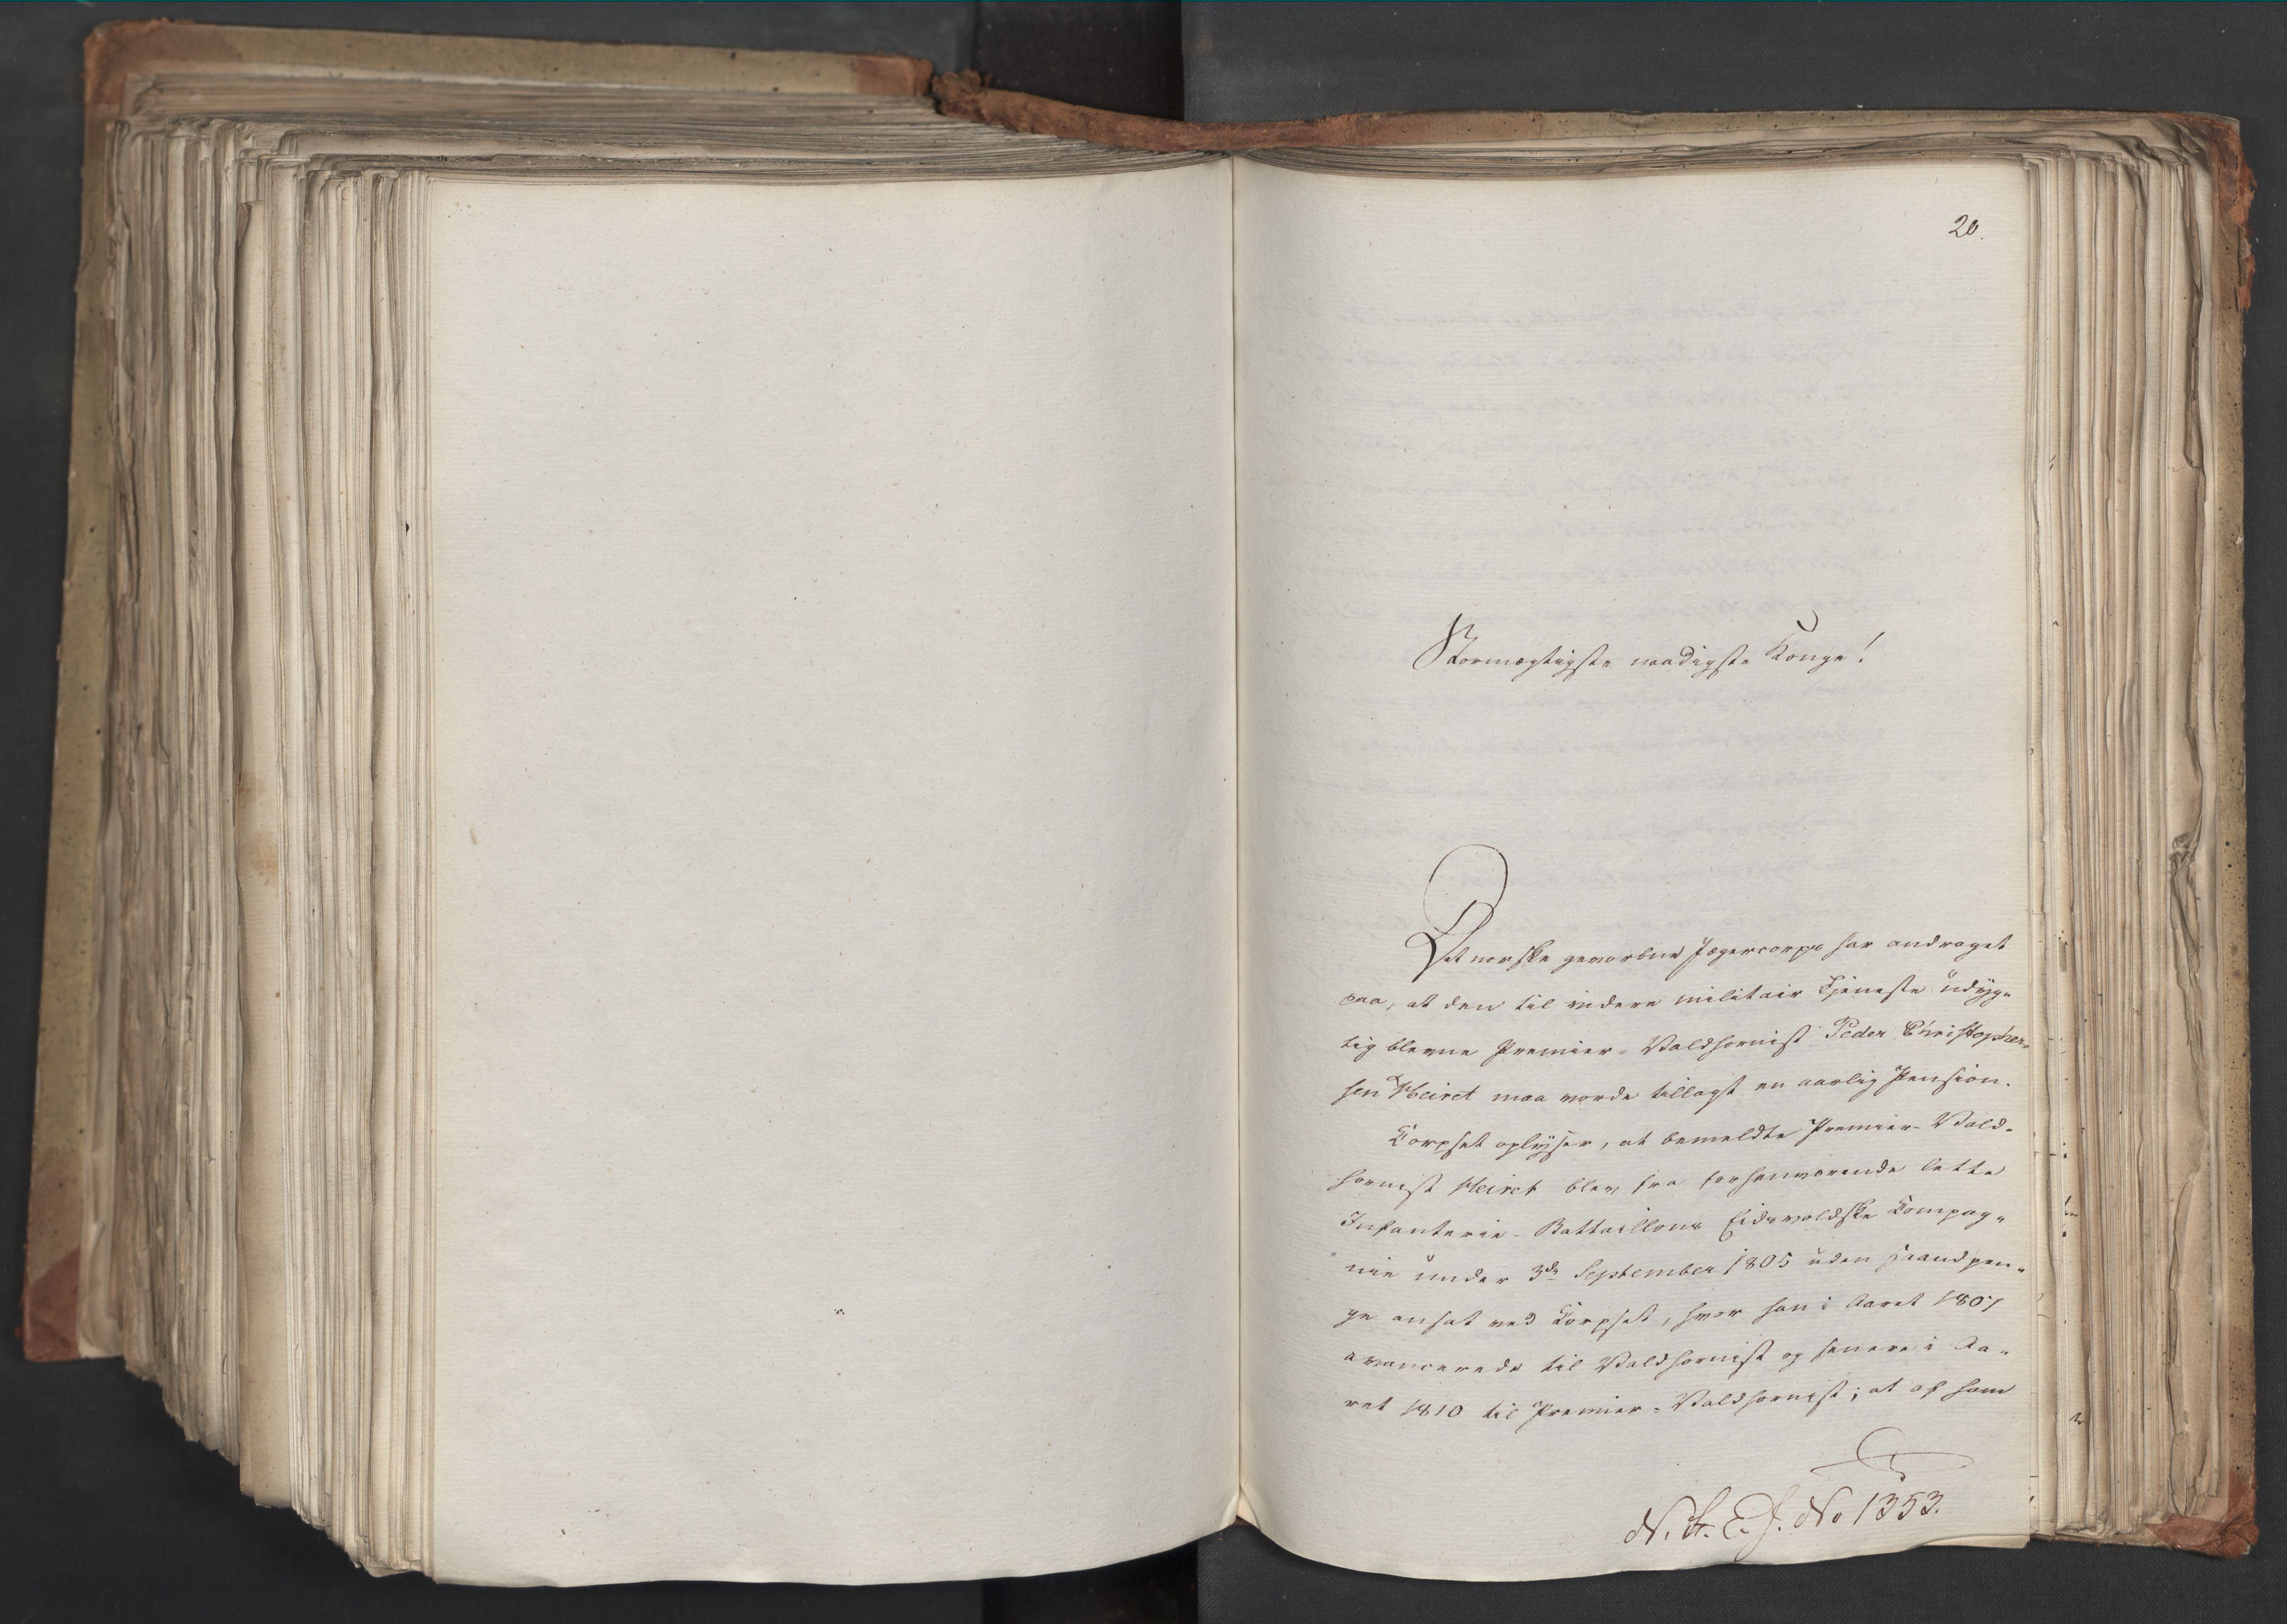 20.
Stormægtigste naadigste Konge!
Det norske gevorbne Jægercorps har andraget
paa, at den til videre militair Tjeneste udyg-
tig blevne Premier-Valdhornist Peder Christopher-
sen Heiret maa vorde tillagt en aarlig Pension.
Corpset oplyser, at bemeldte Premier-Vald-
hornist Heiret blev fra forhenværende lette
Infanterie-Battaillons Eidsvoldske Compag-
nie under 3de September 1805 uden Haandpen-
ge ansat ved Corpset, hvor han i Aaret 1807
avancerede til Valdhornist og senere i Aa-
ret 1810 til Premier-Valdhornist; at af ham
N. St. E. J. No 1353.